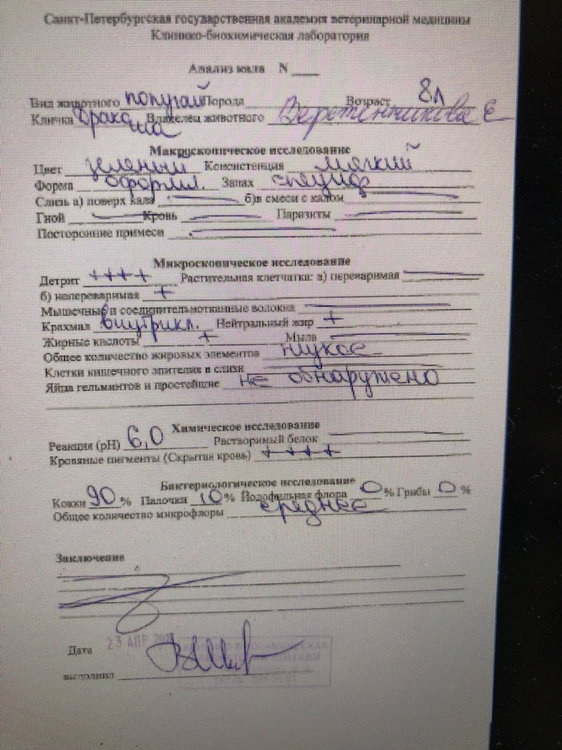 Санкт-Петербургская государственная академия ветеринарной медицины
Клинико-биохимическая лаборатория
Анализ кала N ___
Вид животного попугай Порода Возраст 8л
Кличка Дракоша Владелец животного Веретенникова Е
Макрускопическое исследование
Цвет зеленый Консистенция мягкий
Форма оформл. Запах специф
Слизь а) поверх кала б)в смеси с калом
Гной Кровь Паразиты
Посторонние примеси
Микроскопическое исследование
Детрит ++++ Растительная клетчатка: а) переваримая
б) непереваримая +
Мышечные и соединительнотканные волокна
Крахмал внутрикл. Нейтральный жир +
Жирные кислоты + Мыла
Общее количество жировых элементов низкое
Клетки кишечного эпителия в слизи
Яйца гельминтов и простейшие не обнаружено
Химическое исследование
Реакция (рН) 6,0 Растворимый белок
Кровяные пигменты (Скрытая кровь) ++++
Бактериологическое исследование
Кокки 90 % Палочки 10 % Йодофильная флора 0 % Грибы 0 %
Общее количество микрофлоры среднее
Заключение
Дата 23 АПР
выполнил